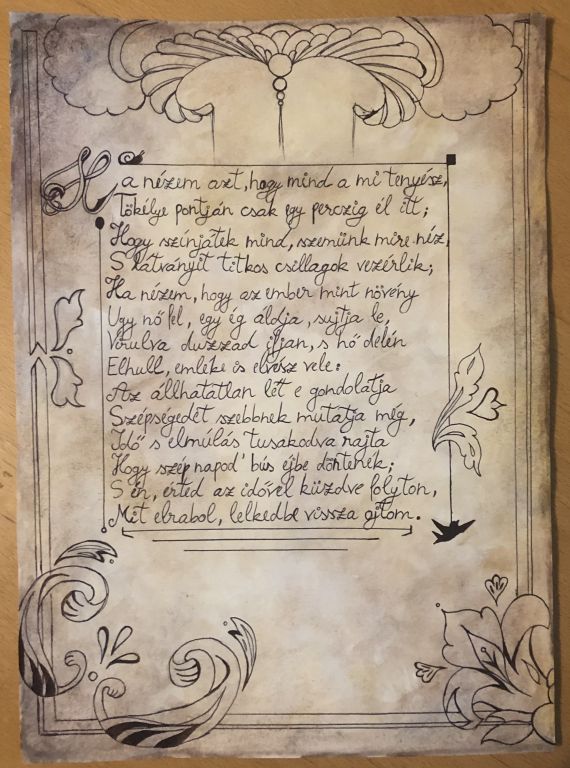 Ha nézem azt, hogy mind a mi tenyész,
Tökélye pontján csak egy perczig él itt;
Hogy színjáték mind, szemünk mire néz,
S látványit titkos csillagok vezérlik;
Ha nézem, hogy az ember mint növény
Ugy nő fel, egy ég áldja, sujtja le,
Virulva duzzad ifjan, s hő delén
Elhull, emléke is elvész vele:
Az állhatatlan lét e gondolatja
Szépségedet szebbnek mutatja még,
Idő s elmúlás tusakodva rajta
Hogy szép napod' bús éjbe döntenék;
S én, érted az idővel küzdve folyton,
Mit elrabol, lelkedbe vissza ojtom.